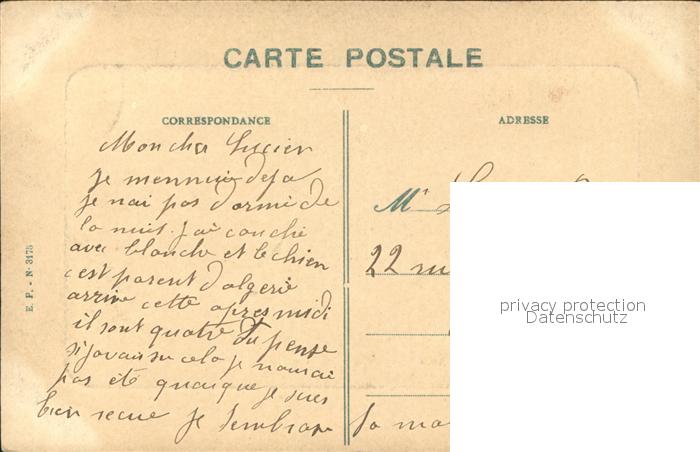 CARTE POSTALE
CORRESPONDANCE
ADRESSE
Mon cher Lucien
je mennuie deja
je nai pas dormi de
la nuit. J'ai couché
avec blanche et le chien
c'est parent d'algerie
arrive cette apres midi
il sont quatre tu pense
si javais su cela je naurai
pas été quoique je suis
bien recue je t'embrasse
Mr
22 rue
Ta
E. P. - No 3175
privacy protection
Datenschutz